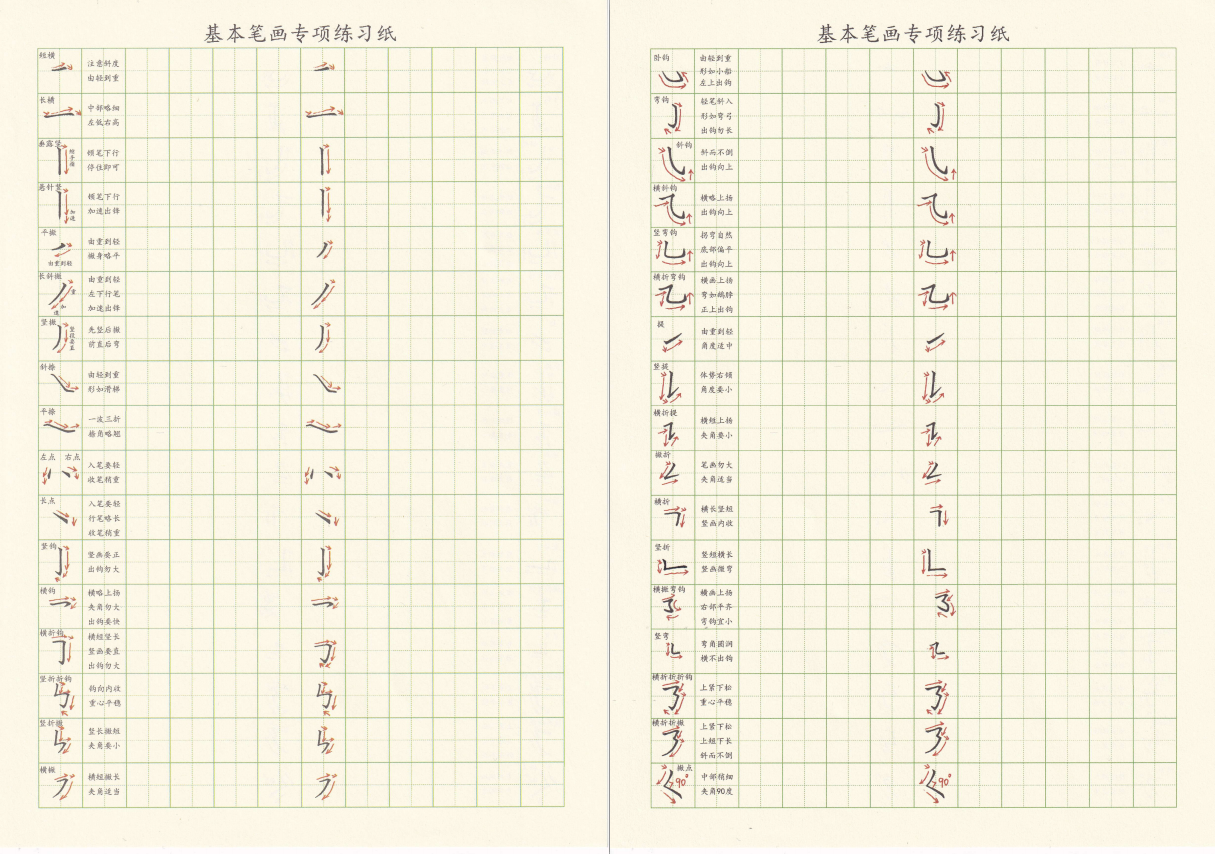 基本笔画专项练习纸
短横
注意斜度
由轻到重
长横
中部略细
左低右高
垂露竖
顿笔下行
停住即可
悬针竖
加速
顿笔下行
加速出锋
平撇
由重到轻
由重到轻
撇身略平
长斜撇
重
加
速
由重到轻
左下行笔
加速出锋
竖撇
竖段要直
先竖后撇
前直后弯
斜捺
由轻到重
形如滑梯
平捺
一波三折
捺角略翘
左点 右点
入笔要轻
收笔稍重
长点
入笔要轻
行笔略长
收笔稍重
竖钩
竖画要正
出钩勿大
横钩
横略上扬
夹角勿大
出钩要快
横折钩
横短竖长
竖画要直
出钩勿大
竖折折钩
钩向内收
重心平稳
竖折撇
竖长撇短
夹角要小
横撇
横短撇长
夹角适当
基本笔画专项练习纸
卧钩
由轻到重
形如小船
左上出钩
弯钩
轻笔斜入
形如弯弓
出钩勿长
斜钩
斜而不倒
出钩向上
横斜钩
横略上扬
出钩向上
竖弯钩
拐弯自然
底部偏平
出钩向上
横折弯钩
横画上扬
弯如鹅脖
正上出钩
提
由重到轻
角度适中
竖提
体势右倾
角度要小
横折提
横短上扬
夹角要小
撇折
笔画勿大
夹角适当
横折
横长竖短
竖画内收
竖折
竖短横长
竖画微弯
横撇弯钩
横画上扬
右部平齐
弯钩宜小
竖弯
弯角圆润
横不出钩
横折折折钩
上紧下松
重心平稳
横折折撇
上紧下松
上短下长
斜而不倒
撇点
90°
中部稍细
夹角90度
90°